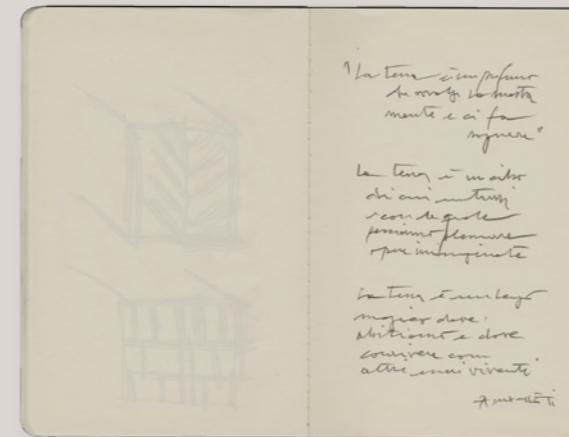 "La terra è un profumo
che avvolge la nostra
mente e ci fa
sognare"
La terra è un cibo
di cui nutrirsi
e con la quale
possiamo plasmare
opere immaginate
La terra è un luogo
magico dove
abitiamo e dove
convivere con
altri esseri viventi.